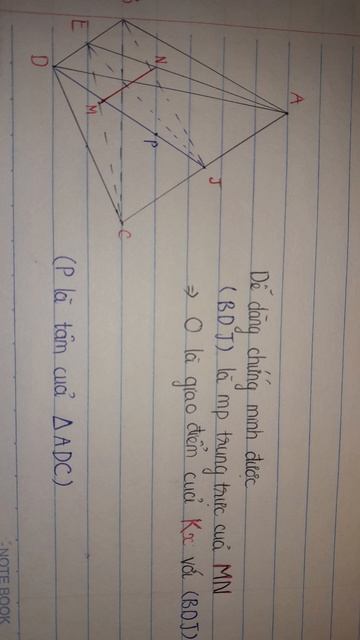 A
B
E
D
N
M
P
J
C
Dễ dàng chứng minh được
(BDJ) là mp trung trực của MN
⇒ O là giao điểm của Kx với (BDJ)
(P là tâm của ΔADC)
NOTEBOOK